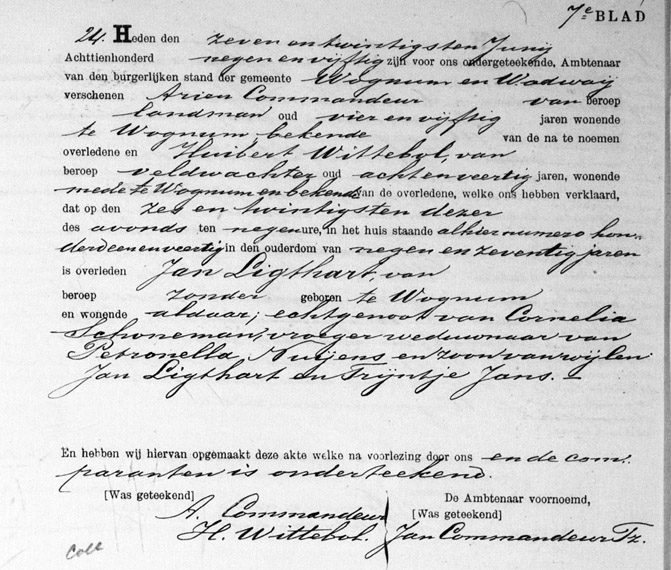 7e BLAD
24. Heden den zeven en twintigsten Junij
Achttienhonderd negen en vijftig zijn voor ons ondergeteekende, Ambtenaar
van den burgerlijken stand der gemeente Wognum en Wadway
verschenen Arien Commandeur van beroep
landman oud vier en vijftig jaren wonende
te Wognum, bekende van de na te noemen
overledene en Huibert Wittebol, van
beroep veldwachter oud acht en veertig jaren, wonende
mede te Wognum en bekende van de overledene, welke ons hebben verklaard,
dat op den zes en twintigsten dezer
des avonds ten negen ure, in het huis staande alhier numero hon-
derdeenenveertig in den ouderdom van negen en zeventig jaren
is overleden Jan Ligthart van
beroep zonder geboren te Wognum
en wonende aldaar; echtgenoot van Cornelia
Schoneman, vroeger weduwnaar van
Petronella Nuijens en zoon van wijlen
Jan Ligthart en Trijntje Jans. –
En hebben wij hiervan opgemaakt deze akte welke na voorlezing door ons en de com-
paranten is onderteekend.
[Was geteekend]
A. Commandeur
H. Wittebol.
De Ambtenaar voornoemd,
[Was geteekend]
Jan Commandeur Tz.
Coll